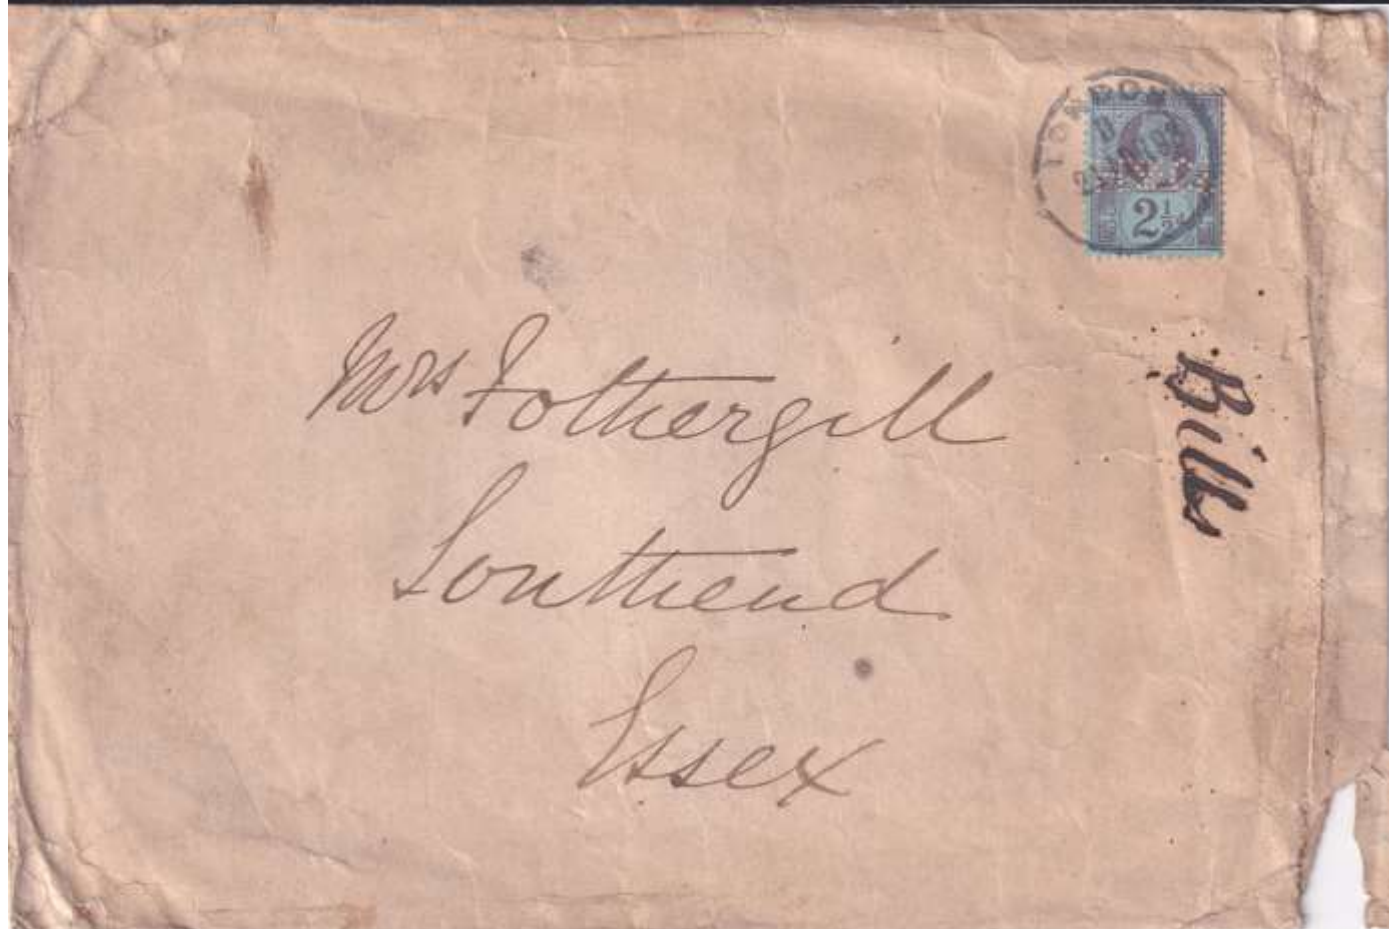 LONDON
2½d
Mrs Fothergill
Southend
Essex
Bills